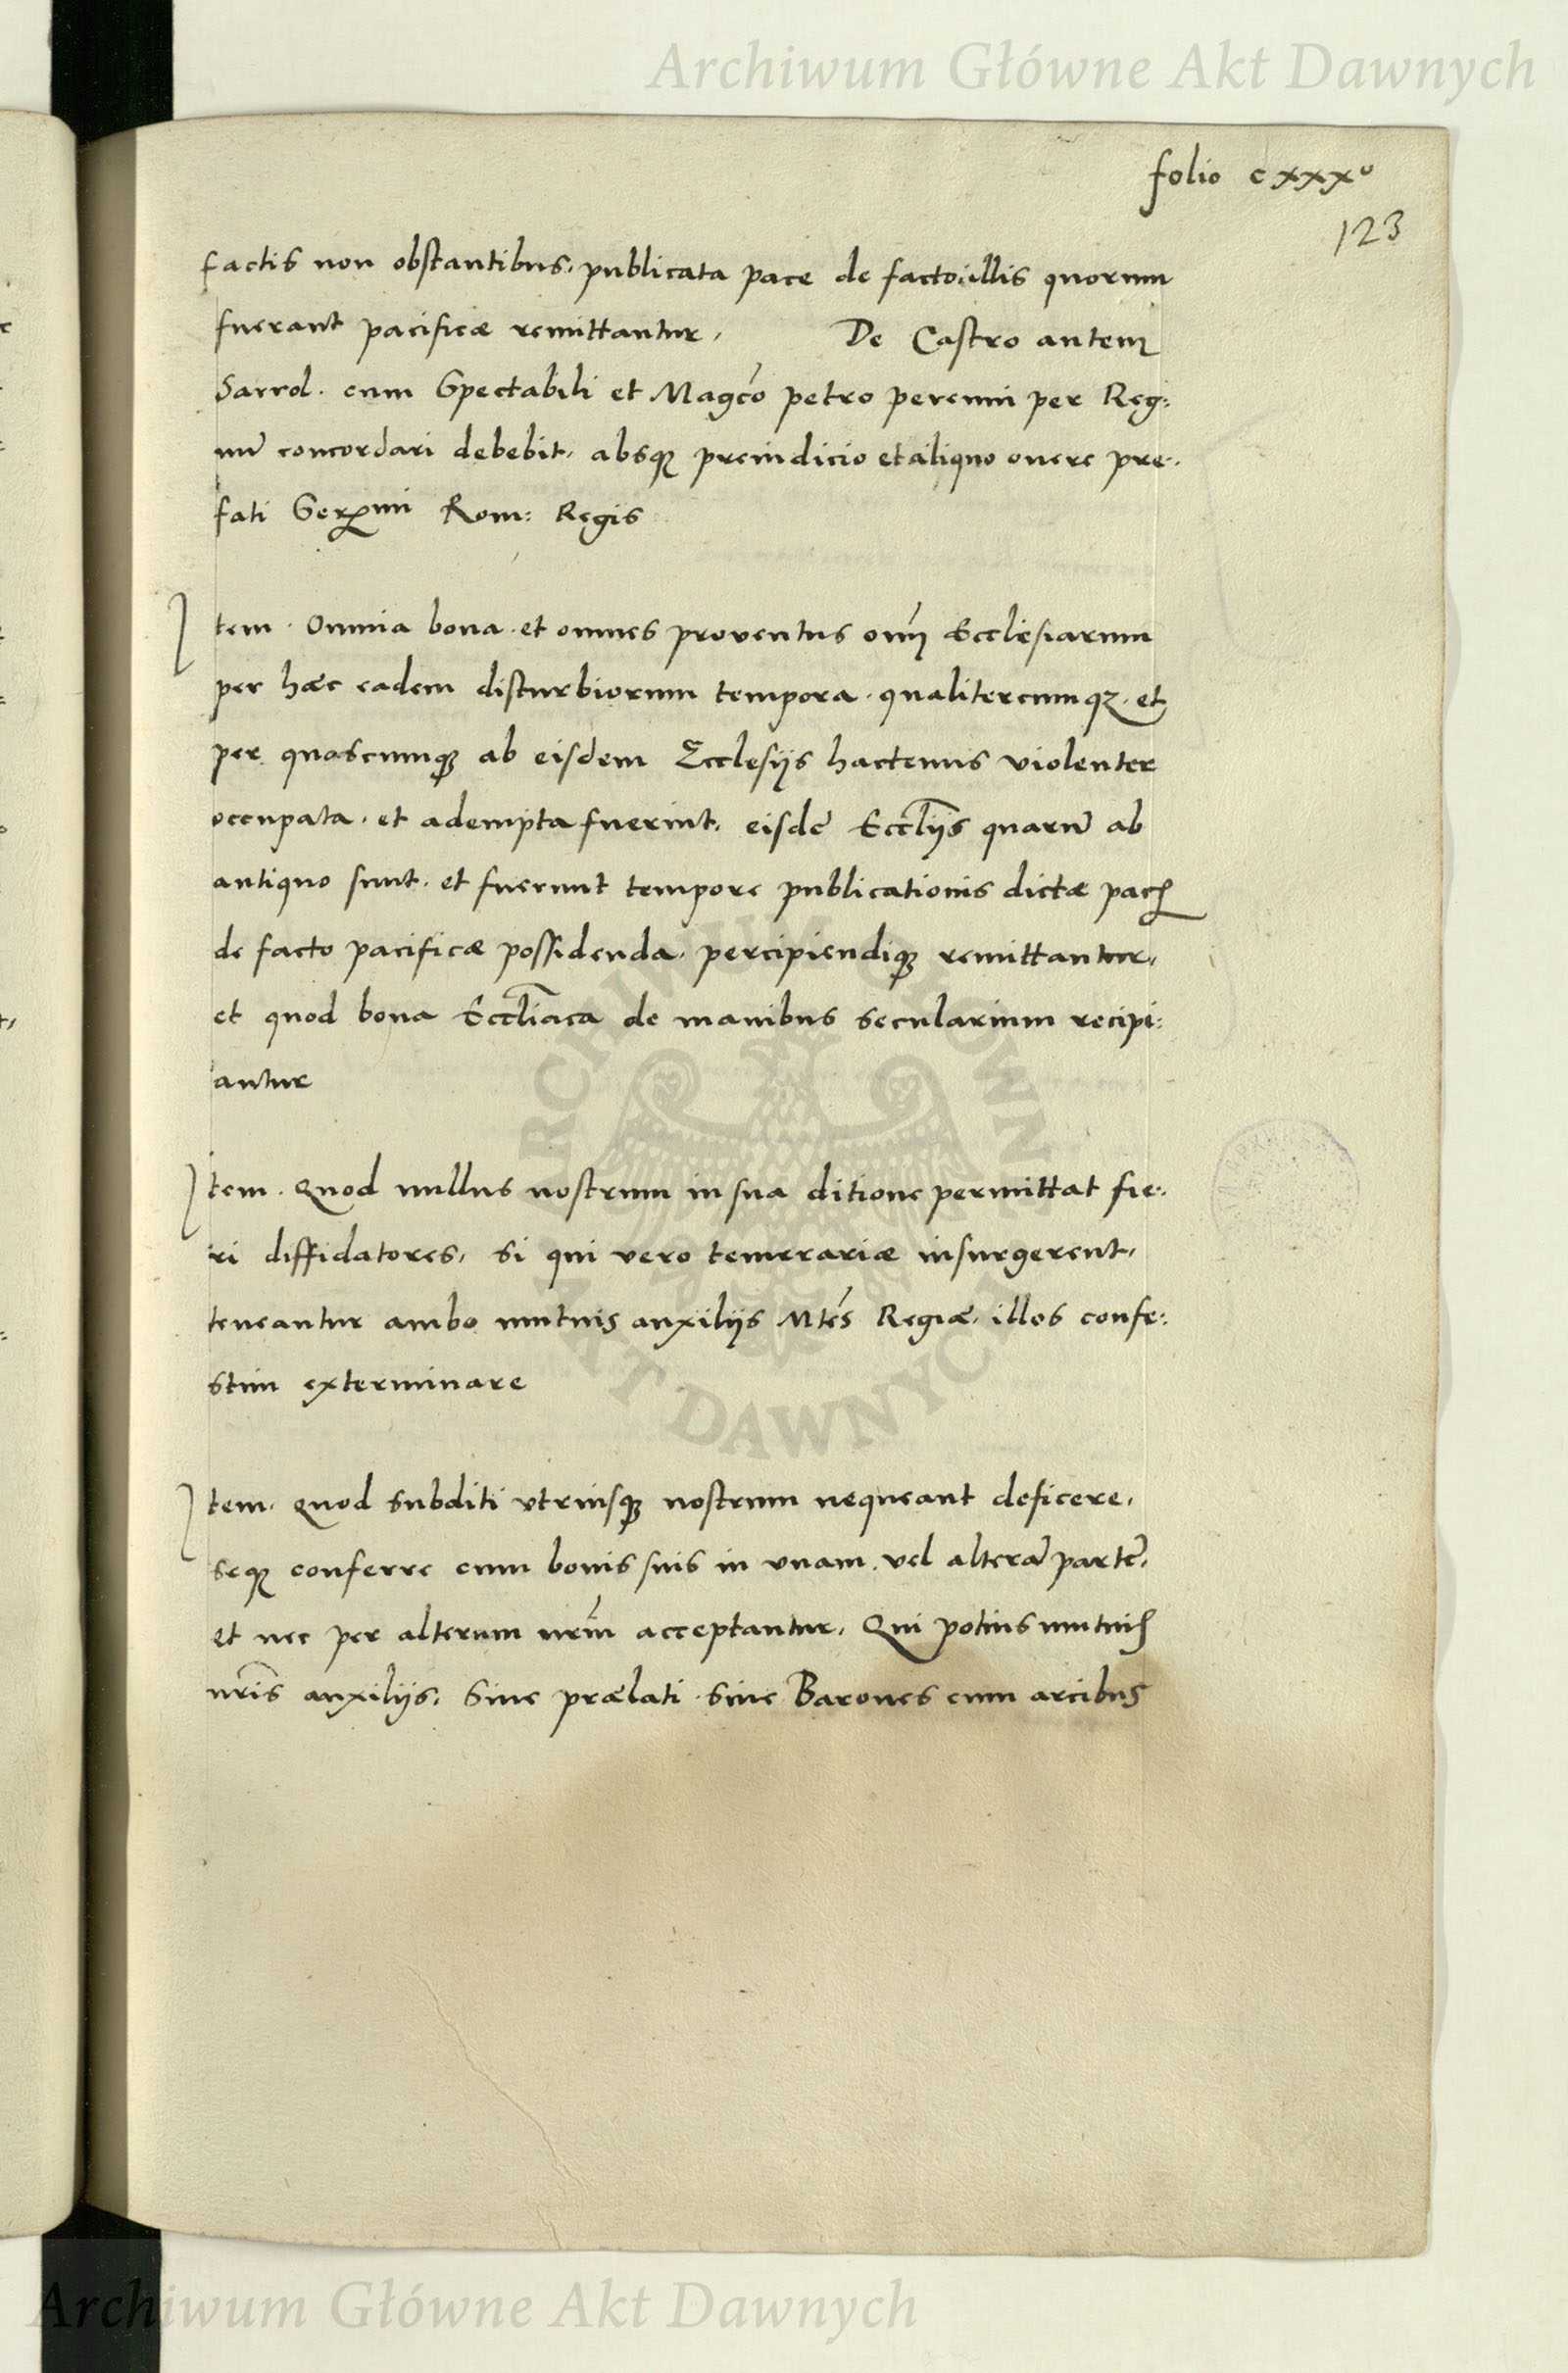 Archiwum Główne Akt Dawnych
folio cxxxº
123
factis non obstantibus, publicata pace de facto illis quorum
fuerant pacificæ remittantur, De Castro autem
Sarrol. cum Spectabili et Magc̃o petro perenni per Reg:
nũ concordari debebit, absqꝫ preiudicio et aliquo onere pre:
fati Serᵐⁱ Rom: Regis
Item. Omnia bona et omnes proventus om̃ Ecclesiarum
per hæc eadem disturbiorum tempora, qualitercumqꝫ, et
per quoscumqꝫ ab eisdem Ecclesijs hactenus violenter
occupata, et adempta fuerint, eisdẽ Eccl̃ijs quarũ ab
antiquo sunt, et fuerunt tempore publicationis dictæ pacis
de facto pacificæ possidenda, percipiendiqꝫ remittantur,
et quod bona Eccl̃iaca de manibus secularium recipi:
antur
Item. Quod nullus nostrum in sua ditione permittat fie:
ri diffidatores, si qui vero temerariæ insurgerent,
teneantur ambo mutuis auxilijs Mtẽs Regiæ, illos confe:
stim exterminare
Item, Quod subditi vtriusqꝫ nostrum nequeant deficere,
seqꝫ conferre cum bonis suis in vnam, vel alterã partẽ,
et nec per alterum nr̃m acceptantur, Qui potius mutuis
nr̃is auxilijs, Siue prælati siue Barones cum arcibus
ARCHIWUM GŁÓWNE
AKT DAWNYCH
Archiwum Główne Akt Dawnych